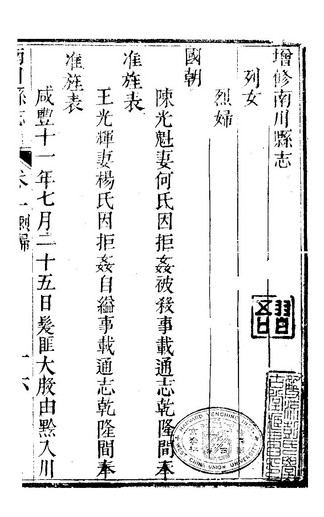 增修南川縣志
列女
烈婦
國朝
陳光魁妻何氏因拒姦被殺事載通志乾隆間奉
准旌表
王光輝妻楊氏因拒姦自縊事載通志乾隆間奉
准旌表
咸豐十一年七月二十五日髮匪大股由黔入川
南川縣志